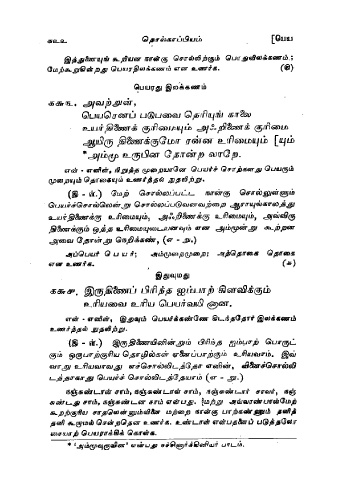 ௧௨௨ தொல்காப்பியம் [பெய
இத்துணையுங் கூறியன நான்கு சொல்லிற்கும் பொதுவிலக்கணம்;
மேற்கூறுகின்றது பெயரதிலக்கணம் என உணர்க. (௫)
பெயரது இலக்கணம்
௧௬௩. அவற்றுள்,
பெயரெனப் படுபவை தெரியுங் காலை
உயர்திணைக் குரிமையும் அஃறிணைக் குரிமை
ஆயிரு திணைக்குமோ ரன்ன உரிமையும் [யும்
*அம்மூ உருபின தோன்ற லாறே.
என் - எனின், நிறுத்த முறையானே பெயர்ச் சொற்களது பெயரும்
முறையும் தொகையும் உணர்த்தல் நுதலிற்று.
(இ - ள்.) மேற் சொல்லப்பட்ட நான்கு சொல்லுள்ளும்
பெயர்ச்சொல்லென்று சொல்லப்படுவனவற்றை ஆராயுங்காலத்து
உயர்திணைக்கு உரிமையும், அஃறிணைக்கு உரிமையும், அவ்விரு
திணைக்கும் ஒத்த உரிமையுடையனவும் என அம்மூன்று கூற்றன
அவை தோன்று நெறிக்கண், (எ - று.)
அப்பெயர் பெயர்; அம்முறைமுறை; அத்தொகை தொகை
என உணர்க. (௬)
இதுவுமது
௧௬௪. இருதிணைப் பிரிந்த ஐம்பாற் கிளவிக்கும்
உரியவை உரிய பெயர்வயி னான.
என் - எனின், இதுவும் பெயர்க்கண்ணே கிடந்ததோர் இலக்கணம்
உணர்த்தல் நுதலிற்று.
(இ - ள்.) இருதிணையினின்றும் பிரிந்த ஐம்பாற் பொருட்
கும் ஒருபாற்குரிய தொழில்கள் ஏனைப்பாற்கும் உரியவாம். இவ்
வாறு உரியவாவது எச்சொல்லிடத்தோ எனின், வினைச்சொல்லி
டத்தாகாது பெயர்ச் சொல்லிடத்தேயாம் (எ - று.)
கஞ்சுண்டான் சாம், கஞ்சுண்டாள் சாம், கஞ்சுண்டார் சாவர், கஞ்
சுண்டது சாம், கஞ்சுண்டன சாம் என்பது.
கூறற்குரிய சாதலென்னும்வினை மற்றை நான்கு பாற்கண்ணும் தனித்
தனி கூறாமல் சென்றதென உணர்க. உண்டான் என்பதனைப் படுத்தலோ
சையாற் பெயராக்கிக் கொள்க.
* 'அம்மூவுருபின' என்பது நச்சினார்க்கினியர் பாடம்.